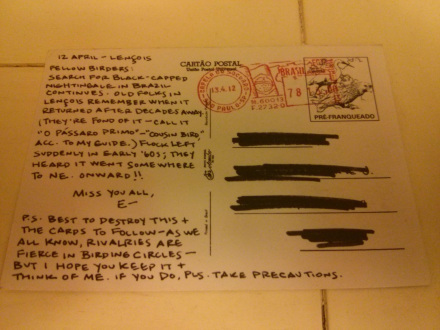 12 APRIL – LENÇOIS
FELLOW BIRDERS:
SEARCH FOR BLACK-CAPPED
NIGHTINGALE IN BRAZIL
CONTINUES. OLD FOLKS IN
LENÇOIS REMEMBER WHEN IT
RETURNED AFTER DECADES AWAY.
(THEY'RE FOND OF IT – CALL IT
"O PÁSSARO PRIMO" – "COUSIN BIRD,"
ACC. TO MY GUIDE.) FLOCK LEFT
SUDDENLY IN EARLY '60s; THEY
HEARD IT WENT SOMEWHERE
TO NE. ONWARD!!
MISS YOU ALL,
E—
P.S. BEST TO DESTROY THIS +
THE CARDS TO FOLLOW – AS WE
ALL KNOW, RIVALRIES ARE
FIERCE IN BIRDING CIRCLES –
BUT I HOPE YOU KEEP IT +
THINK OF ME. IF YOU DO, PLS. TAKE PRECAUTIONS.
CARTÃO POSTAL
13.4.12
SÃO PAULO
BRASIL
78
PRÉ-FRANQUEADO